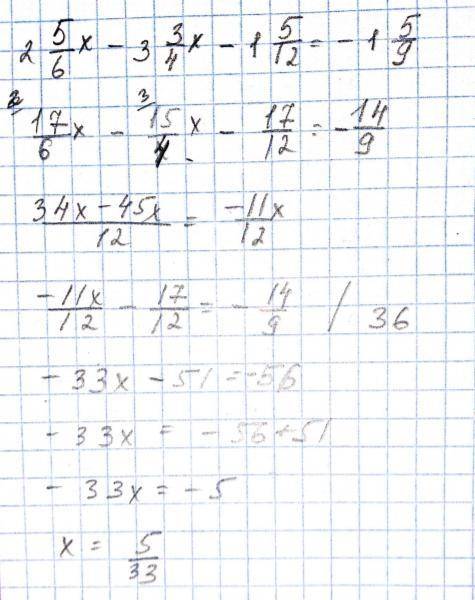 2 5/6 x - 3 3/4 x - 1 5/12 = - 1 5/9
2 3
17/6 x - 15/4 x - 17/12 = - 14/9
34x - 45x / 12 = -11x / 12
-11x / 12 - 17/12 = - 14/9 / 36
- 33x - 51 = -56
- 33x = - 56 + 51
- 33x = - 5
x = 5/33